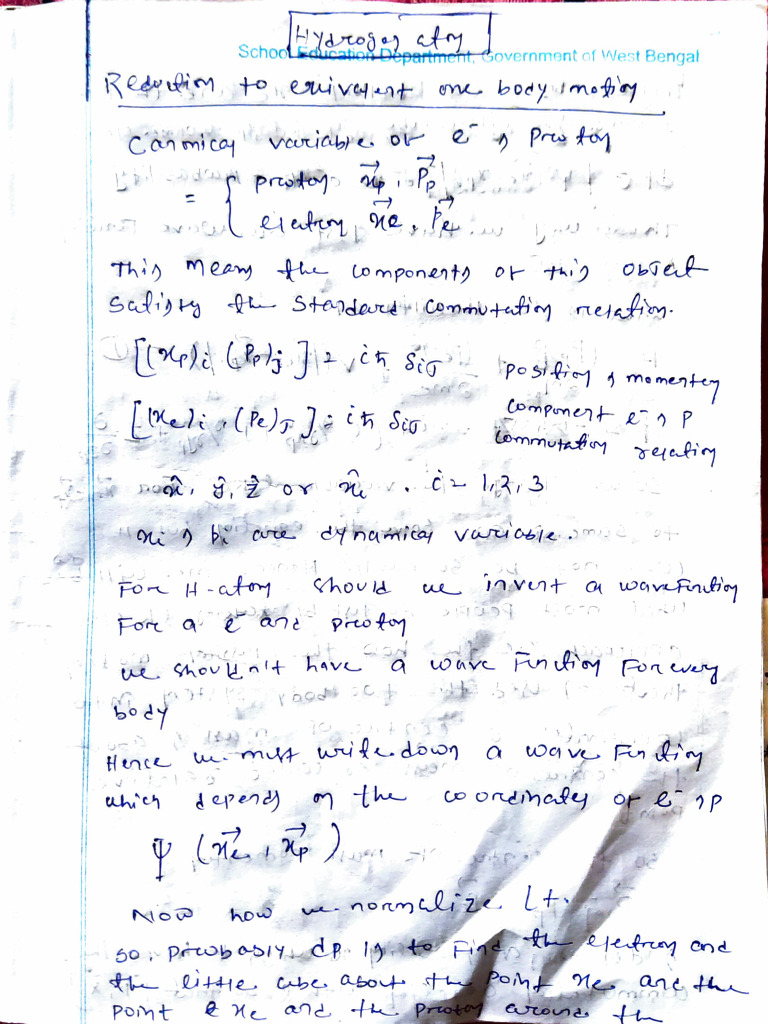 Hydrogen atom
School Education Department, Government of West Bengal
Reduction to equivalent one body motion
Canonical variable of e⁻ & Proton
= { proton x⃗p, P⃗p
electron x⃗e, P⃗e
This means the components of this object
satisfy the standard commutation relation.
[(xp)i (Pp)j] = iħ δij position & momentum
[(xe)i, (Pe)j] = iħ δij component e⁻ & P
commutation relation
x̂, ŷ, ẑ or x̂i . i = 1,2,3
xi & pi are dynamical variable.
For H-atom should we invent a wavefunction
For a e⁻ and proton
we shouldn't have a wave Function For every
body
Hence we must write down a wave Function
which depends on the coordinates of e⁻ & p
Ψ (x⃗e, x⃗p)
Now how we normalize it.
so, probably dp is to Find the electron and
the little cube about the point xe and the
point xe and the proton around the